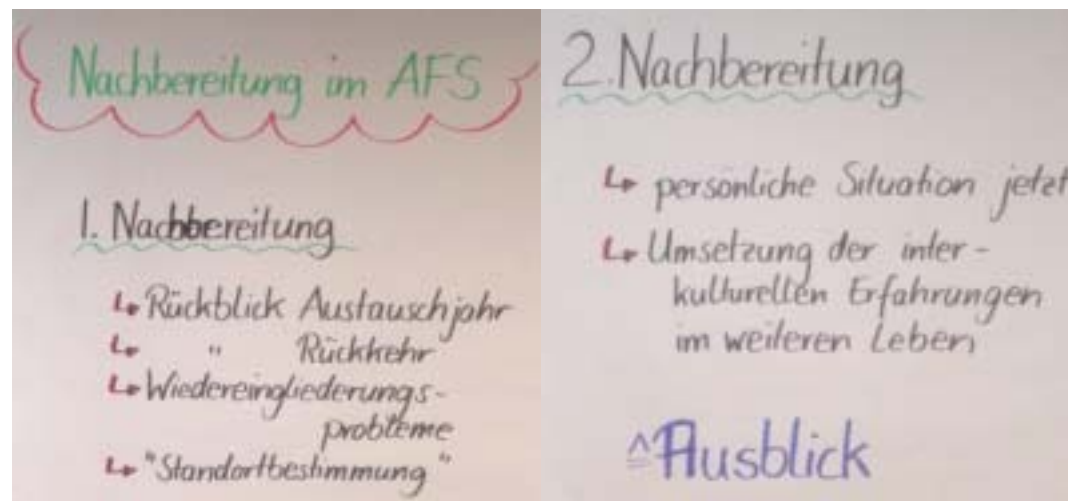 Nachbereitung im AFS
1. Nachbereitung
↳ Rückblick Austauschjahr
↳ " Rückkehr
↳ Wiedereingliederungs-
probleme
↳ "Standortbestimmung"
2. Nachbereitung
↳ persönliche Situation jetzt
↳ Umsetzung der inter-
kulturellen Erfahrungen
im weiteren Leben
≙ Ausblick